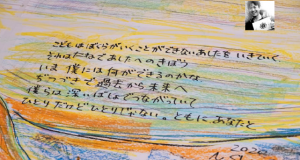 こどもはぼくらがいくことができないあしたを いきていく
それはたなであしたへのきぼう
いま 僕には何ができるのかな
ちつづきで過去から未来へ
僕らは深いばしょでつながっていて
ひとりだけどひとりじゃない。ともにあなたと
2020